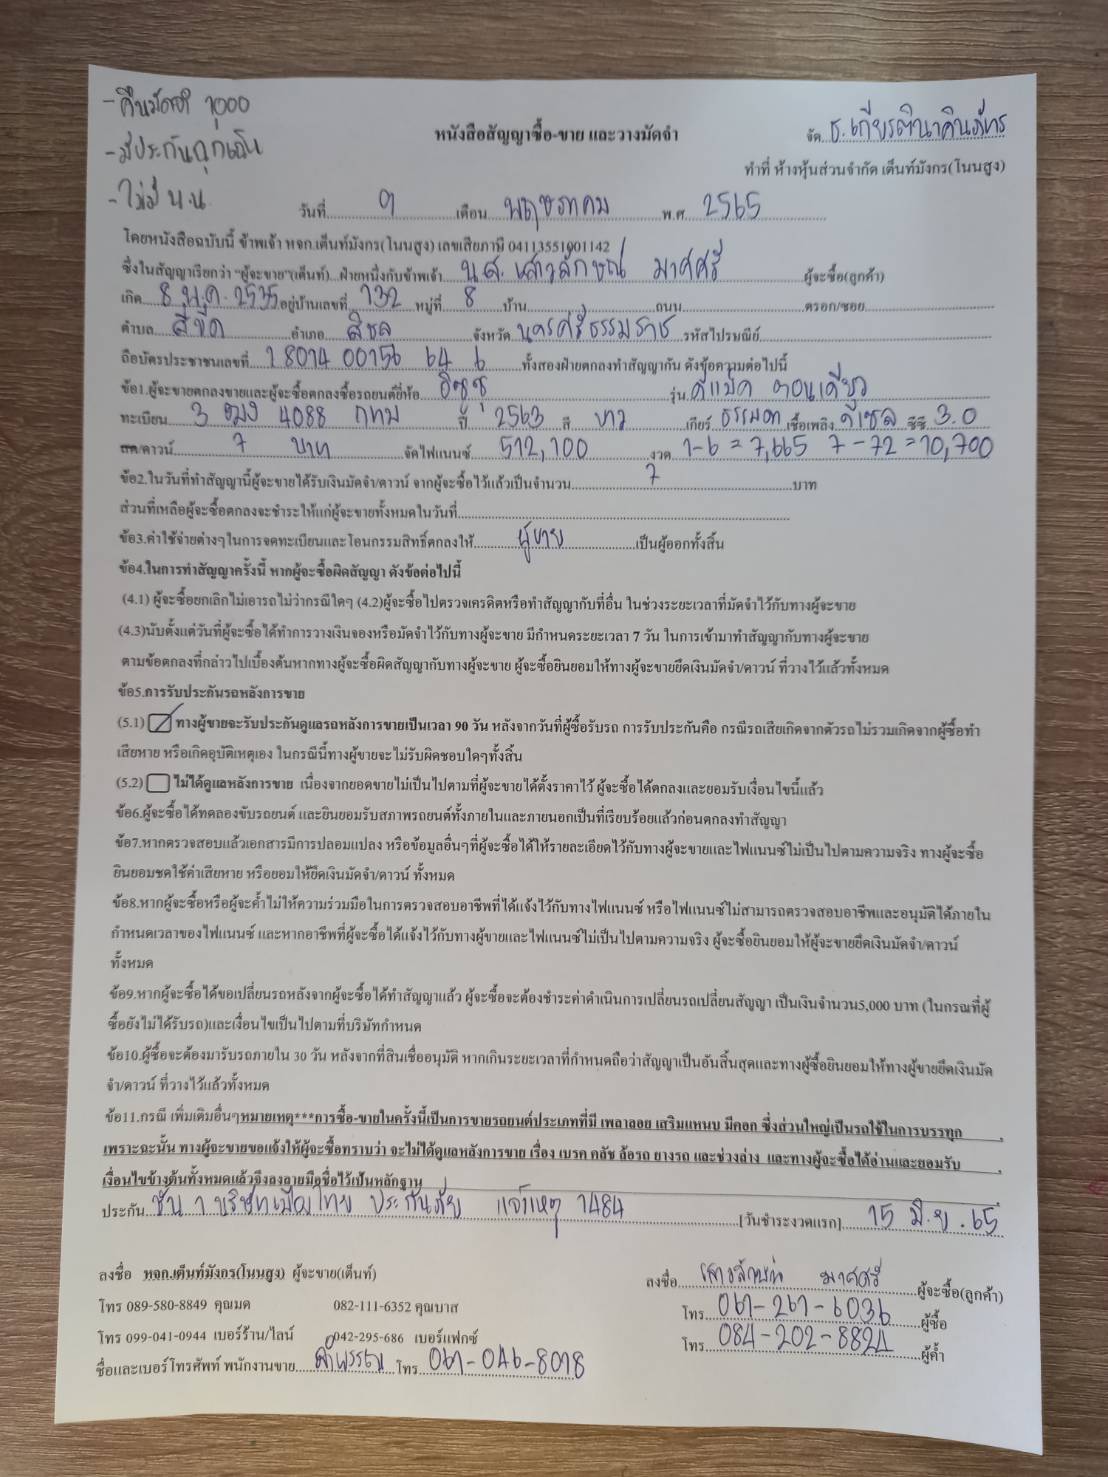 - คืนมัดจำ 1000
หนังสือสัญญาซื้อ-ขาย และวางมัดจำ
จัด ธ.เกียรตินาคินภัทร
- มีประกันฉุกเฉิน
ทำที่ ห้างหุ้นส่วนจำกัด เต็นท์มังกร(โนนสูง)
- ไม่มี น.น
วันที่ 9 เดือน พฤษภาคม พ.ศ. 2565
โดยหนังสือฉบับนี้ ข้าพเจ้า หจก.เต็นท์มังกร(โนนสูง) เลขเสียภาษี 04113551001142
ซึ่งในสัญญาเรียกว่า "ผู้จะขาย"(เต็นท์) ฝ่ายหนึ่งกับข้าพเจ้า น.ส. เสาวลักษณ์ มาศศรี ผู้จะซื้อ(ลูกค้า)
เกิด 8 พ.ค. 2535 อยู่บ้านเลขที่ 132 หมู่ที่ 8 บ้าน ถนน ตรอก/ซอย
ตำบล สี่ขีด อำเภอ สิชล จังหวัด นครศรีธรรมราช รหัสไปรษณีย์
ถือบัตรประชาชนเลขที่ 1 8014 00156 64 6 ทั้งสองฝ่ายตกลงทำสัญญากัน ดังข้อความต่อไปนี้
ข้อ1.ผู้จะขายตกลงขายและผู้จะซื้อตกลงซื้อรถยนต์ยี่ห้อ อีซูซุ รุ่น ดีแม็ค ตอนเดียว
ทะเบียน 3 ฒฆ 4088 กทม ปี 2563 สี ขาว เกียร์ ธรรมดา เชื้อเพลิง ดีเซล ซีซี 3.0
สด/ดาวน์ 7 บาท จัดไฟแนนซ์ 512,100 งวด 1-6 = 7,665 7-72 = 10,700
ข้อ2.ในวันที่ทำสัญญานี้ผู้จะขายได้รับเงินมัดจำ/ดาวน์ จากผู้จะซื้อไว้แล้วเป็นจำนวน 7 บาท
ส่วนที่เหลือผู้จะซื้อตกลงจะชำระให้แก่ผู้จะขายทั้งหมดในวันที่
ข้อ3.ค่าใช้จ่ายต่างๆในการจดทะเบียนและโอนกรรมสิทธิ์ตกลงให้ ผู้ขาย เป็นผู้ออกทั้งสิ้น
ข้อ4.ในการทำสัญญาครั้งนี้ หากผู้จะซื้อผิดสัญญา ดังข้อต่อไปนี้
(4.1) ผู้จะซื้อยกเลิกไม่เอารถไม่ว่ากรณีใดๆ (4.2)ผู้จะซื้อไปตรวจเครดิตหรือทำสัญญากับที่อื่น ในช่วงระยะเวลาที่มัดจำไว้กับทางผู้จะขาย
(4.3)นับตั้งแต่วันที่ผู้จะซื้อได้ทำการวางเงินจองหรือมัดจำไว้กับทางผู้จะขาย มีกำหนดระยะเวลา 7 วัน ในการเข้ามาทำสัญญากับทางผู้จะขาย
ตามข้อตกลงที่กล่าวไปเบื้องต้นหากทางผู้จะซื้อผิดสัญญากับทางผู้จะขาย ผู้จะซื้อยินยอมให้ทางผู้จะขายยึดเงินมัดจำ/ดาวน์ ที่วางไว้แล้วทั้งหมด
ข้อ5.การรับประกันรถหลังการขาย
(5.1) ทางผู้ขายจะรับประกันดูแลรถหลังการขายเป็นเวลา 90 วัน หลังจากวันที่ผู้ซื้อรับรถ การรับประกันคือ กรณีรถเสียเกิดจากตัวรถไม่รวมเกิดจากผู้ซื้อทำ
เสียหาย หรือเกิดอุบัติเหตุเอง ในกรณีนี้ทางผู้ขายจะไม่รับผิดชอบใดๆทั้งสิ้น
(5.2) ไม่ได้ดูแลหลังการขาย เนื่องจากยอดขายไม่เป็นไปตามที่ผู้จะขายได้ตั้งราคาไว้ ผู้จะซื้อได้ตกลงและยอมรับเงื่อนไขนี้แล้ว
ข้อ6.ผู้จะซื้อได้ทดลองขับรถยนต์ และยินยอมรับสภาพรถยนต์ทั้งภายในและภายนอกเป็นที่เรียบร้อยแล้วก่อนตกลงทำสัญญา
ข้อ7.หากตรวจสอบแล้วเอกสารมีการปลอมแปลง หรือข้อมูลอื่นๆที่ผู้จะซื้อได้ให้รายละเอียดไว้กับทางผู้จะขายและไฟแนนซ์ไม่เป็นไปตามความจริง ทางผู้จะซื้อ
ยินยอมชดใช้ค่าเสียหาย หรือยอมให้ยึดเงินมัดจำ/ดาวน์ ทั้งหมด
ข้อ8.หากผู้จะซื้อหรือผู้จะค้ำไม่ให้ความร่วมมือในการตรวจสอบอาชีพที่ได้แจ้งไว้กับทางไฟแนนซ์ หรือไฟแนนซ์ไม่สามารถตรวจสอบอาชีพและอนุมัติได้ภายใน
กำหนดเวลาของไฟแนนซ์ และหากอาชีพที่ผู้จะซื้อได้แจ้งไว้กับทางผู้ขายและไฟแนนซ์ไม่เป็นไปตามความจริง ผู้จะซื้อยินยอมให้ผู้จะขายยึดเงินมัดจำ/ดาวน์
ทั้งหมด
ข้อ9.หากผู้จะซื้อได้ขอเปลี่ยนรถหลังจากผู้จะซื้อได้ทำสัญญาแล้ว ผู้จะซื้อจะต้องชำระค่าดำเนินการเปลี่ยนรถเปลี่ยนสัญญา เป็นเงินจำนวน5,000 บาท (ในกรณีที่ผู้
ซื้อยังไม่ได้รับรถ)และเงื่อนไขเป็นไปตามที่บริษัทกำหนด
ข้อ10.ผู้ซื้อจะต้องมารับรถภายใน 30 วัน หลังจากที่สินเชื่ออนุมัติ หากเกินระยะเวลาที่กำหนดถือว่าสัญญาเป็นอันสิ้นสุดและทางผู้ซื้อยินยอมให้ทางผู้ขายยึดเงินมัด
จำ/ดาวน์ ที่วางไว้แล้วทั้งหมด
ข้อ11.กรณี เพิ่มเติมอื่นๆหมายเหตุ***การซื้อ-ขายในครั้งนี้เป็นการขายรถยนต์ประเภทที่มี เพลาลอย เสริมแหนบ มีคอก ซึ่งส่วนใหญ่เป็นรถใช้ในการบรรทุก
เพราะฉะนั้น ทางผู้จะขายขอแจ้งให้ผู้จะซื้อทราบว่า จะไม่ได้ดูแลหลังการขาย เรื่อง เบรค คลัช ล้อรถ ยางรถ และช่วงล่าง และทางผู้จะซื้อได้อ่านและยอมรับ
เงื่อนไขข้างต้นทั้งหมดแล้วจึงลงลายมือชื่อไว้เป็นหลักฐาน
ประกัน ชั้น 1 บริษัทเมืองไทย ประกันภัย แจ้งเหตุ 1484 [วันชำระงวดแรก] 15 มิ.ย. 65
ลงชื่อ หจก.เต็นท์มังกร(โนนสูง) ผู้จะขาย(เต็นท์)
ลงชื่อ เสาวลักษณ์ มาศศรี ผู้จะซื้อ(ลูกค้า)
โทร 089-580-8849 คุณมด 082-111-6352 คุณบาส
โทร 061-261-6036 ผู้ซื้อ
โทร 099-041-0944 เบอร์ร้าน/ไลน์ 042-295-686 เบอร์แฟกซ์
โทร 084-202-8824 ผู้ค้ำ
ชื่อและเบอร์โทรศัพท์ พนักงานขาย ลำพรรณ โทร 061-046-8018